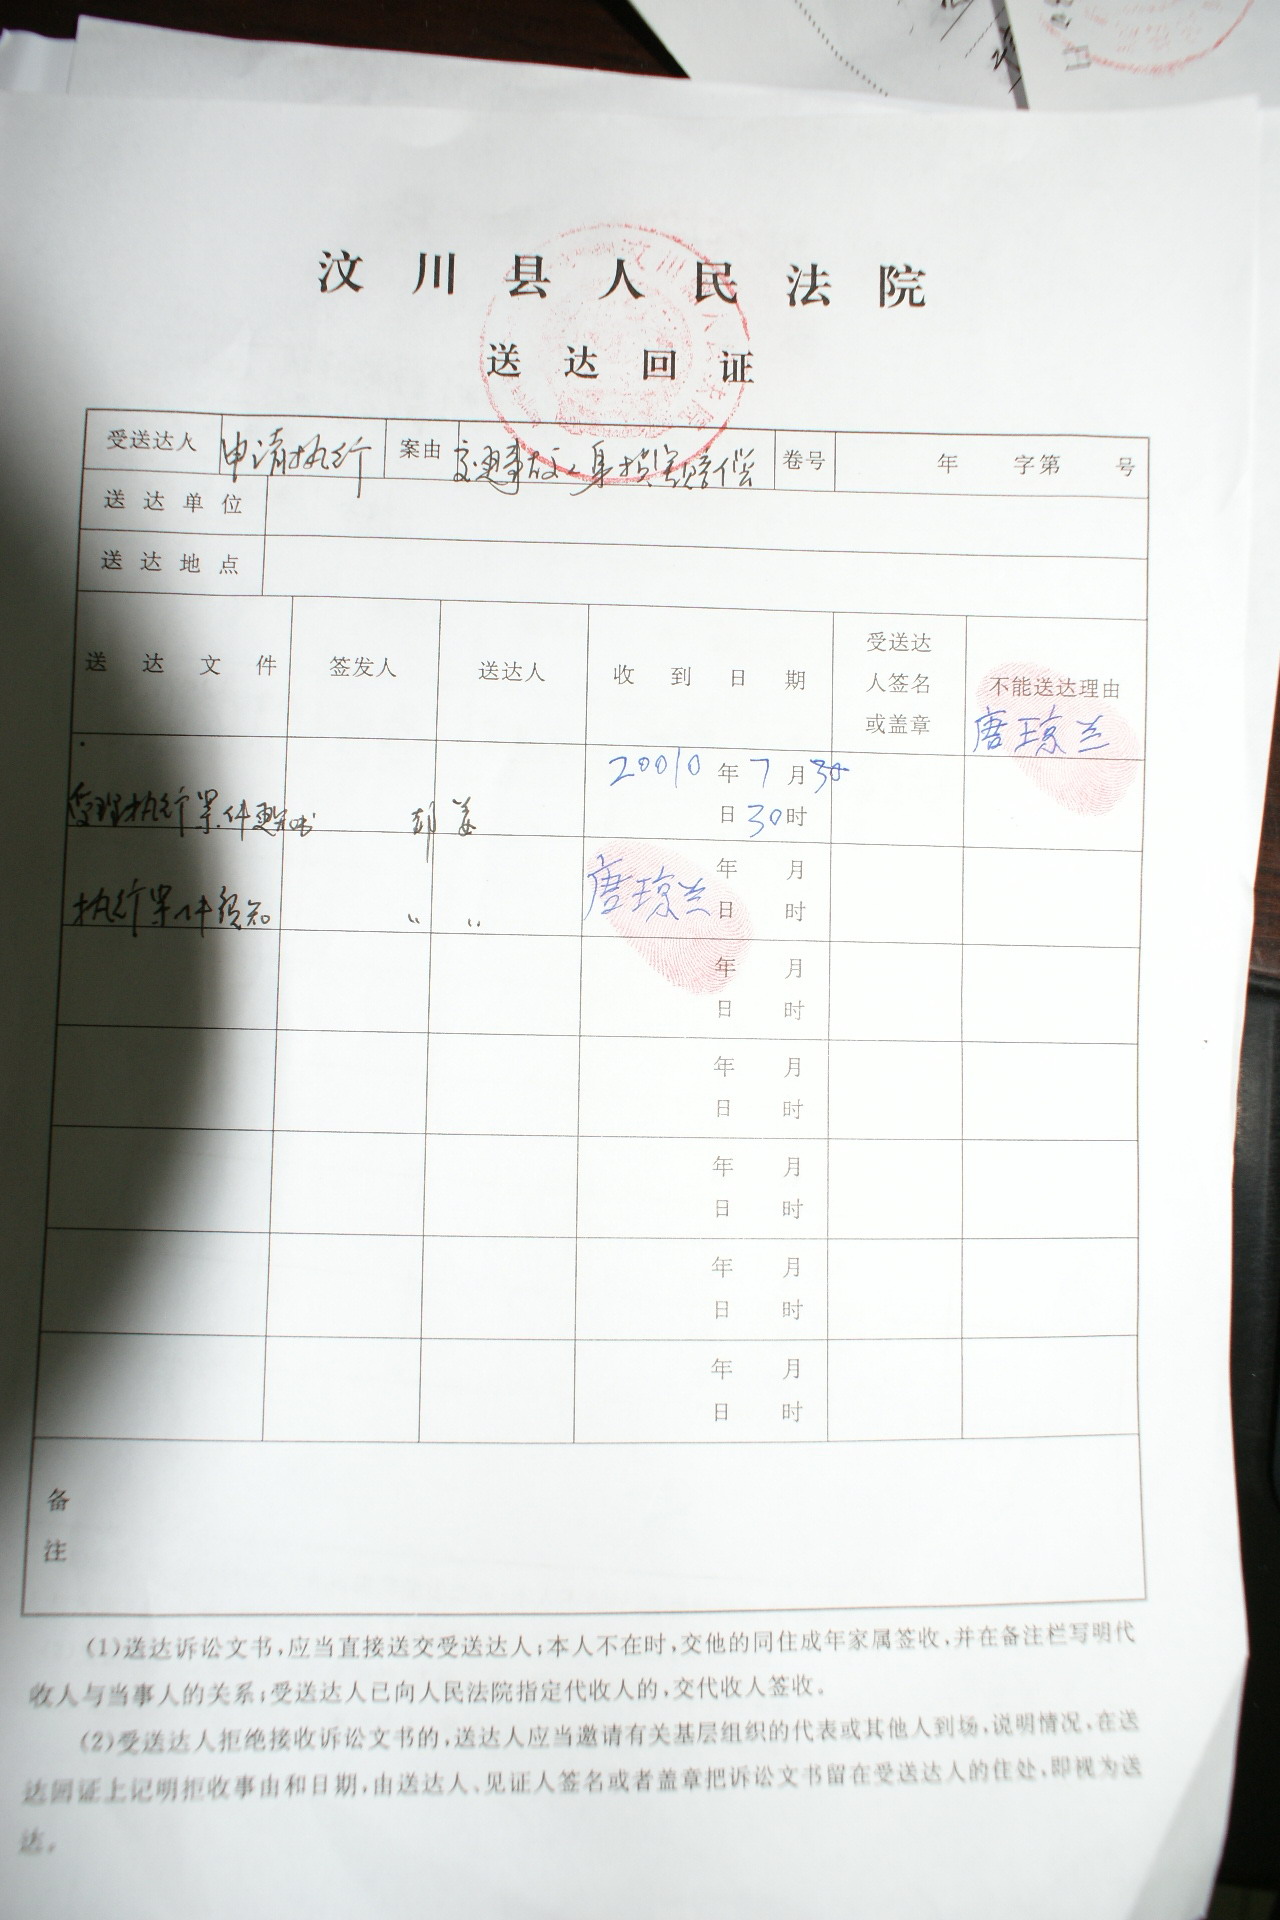 汶川县人民法院
送达回证
受送达人 申请执行 案由 交通事故人身损害赔偿 卷号 年 字第 号
送达单位
送达地点
送达文件 签发人 送达人 收到日期 受送达人签名或盖章 不能送达理由
唐琼兰
受理执行案件通知书 彭 姜 20010年7月30
日30时
执行案件须知 〃 〃 唐琼兰 年 月
日 时
年 月
日 时
年 月
日 时
年 月
日 时
年 月
日 时
年 月
日 时
备
注
(1)送达诉讼文书,应当直接送交受送达人;本人不在时,交他的同住成年家属签收,并在备注栏写明代
收人与当事人的关系;受送达人已向人民法院指定代收人的,交代收人签收。
(2)受送达人拒绝接收诉讼文书的,送达人应当邀请有关基层组织的代表或其他人到场,说明情况,在送
达回证上记明拒收事由和日期,由送达人、见证人签名或者盖章把诉讼文书留在受送达人的住处,即视为送
达。